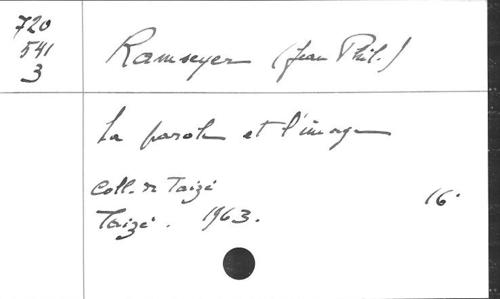 720
541
3
Ramseyer (Jean Phil.)
La parole et l'image
Coll. de Taizé
16°
Taizé. 1963.